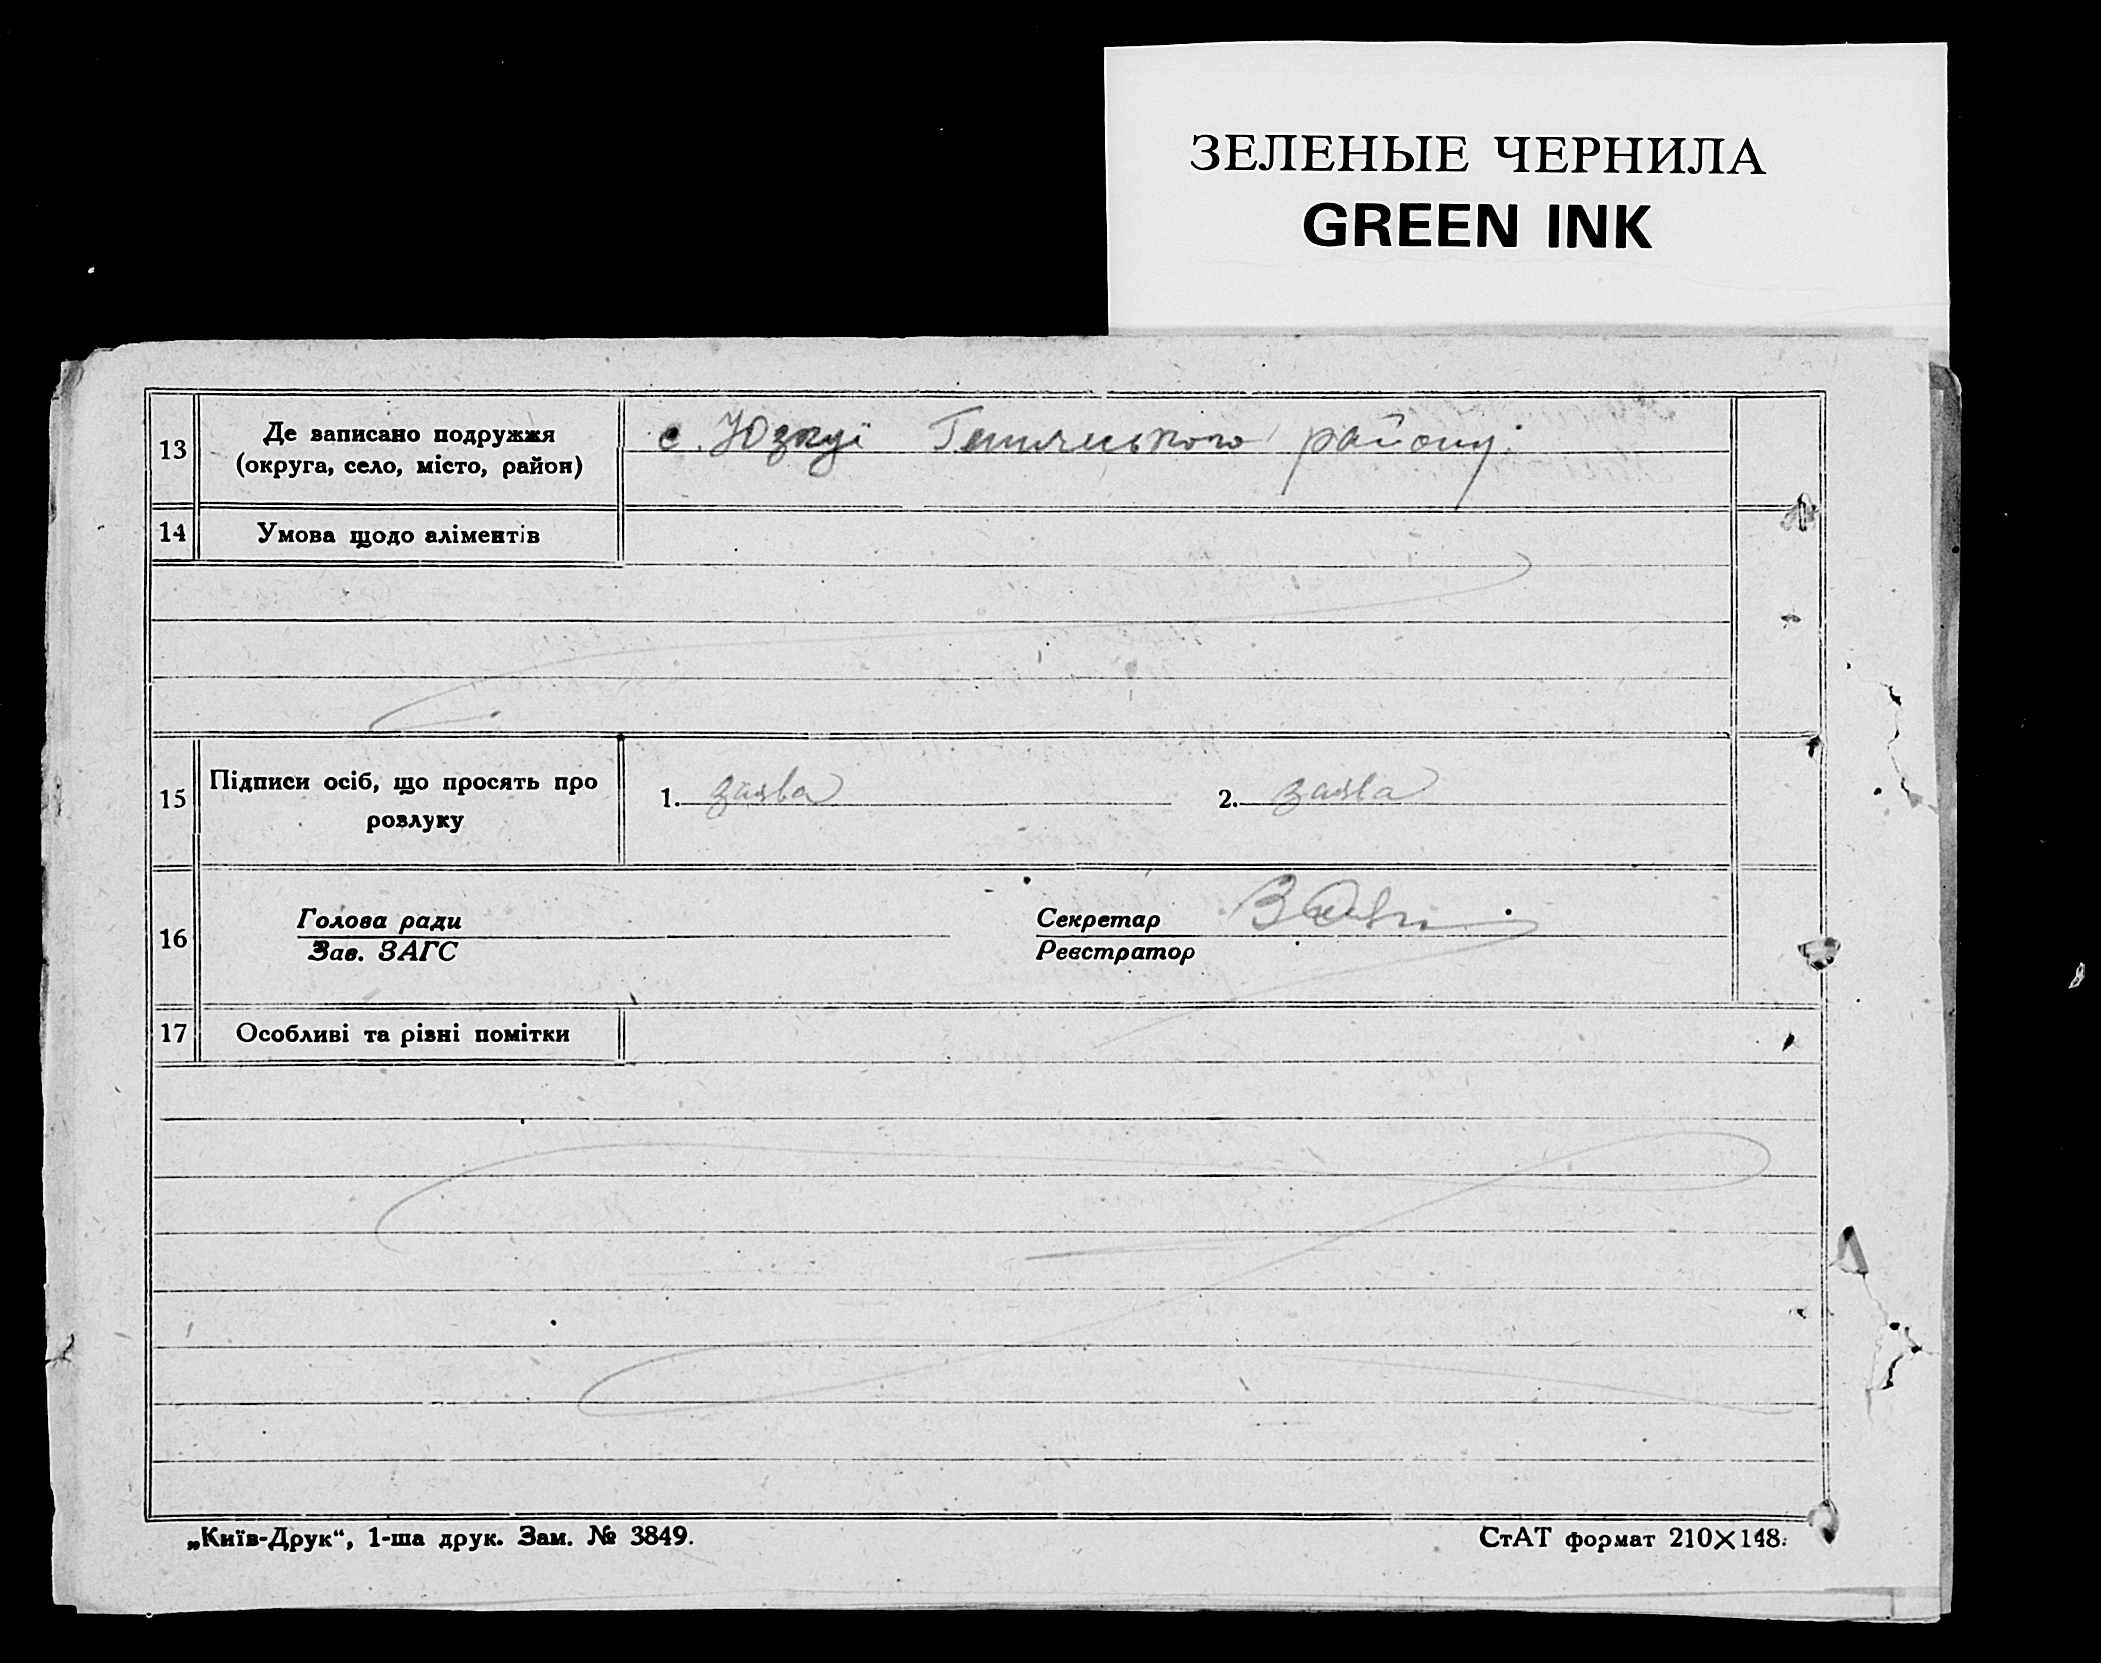 ЗЕЛЕНЫЕ ЧЕРНИЛА
GREEN INK
13 Де записано подружжя
(округа, село, місто, район)
с. Юзкуї Геничеського району.
14 Умова щодо аліментів
15 Підписи осіб, що просять про
розлуку
1. заява 2. заява
16 Голова ради Секретар
Зав. ЗАГС Реєстратор
17 Особливі та різні помітки
„Київ-Друк“, 1-ша друк. Зам. № 3849. СтАТ формат 210×148.